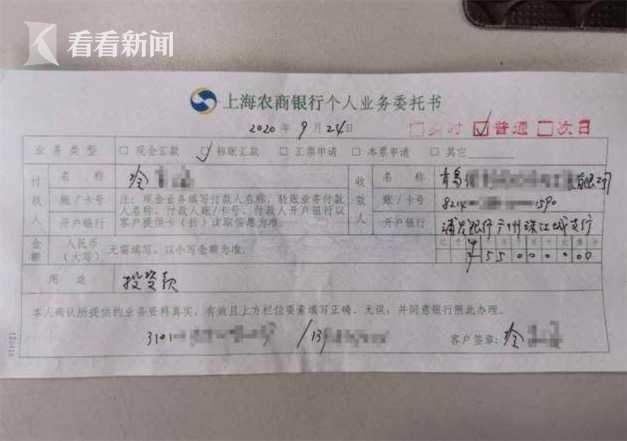 看看新闻
上海农商银行个人业务委托书
2020年9月24日 □实时 ☑普通 □次日
业务类型 □现金汇款 ☑转账汇款 □汇票申请 □本票申请 □其它
付款人 名称 收款人 名称 青岛 有限公司
账/卡号 注:现金业务填写付款人名称,转账业务付款人名称、付款人账/卡号、付款人开户银行以客户提供卡(折)读取信息为准。 账/卡号 8214 1590
开户银行 开户银行 浦发银行广州珠江城支行
金额 人民币(大写) 无需填写,以小写金额为准。 ¥5500000
用途 投资款
本人确认所提供的业务资料真实、有效且上方栏位要素填写正确、无误,并同意银行照此办理。
3101 /139 客户签章: